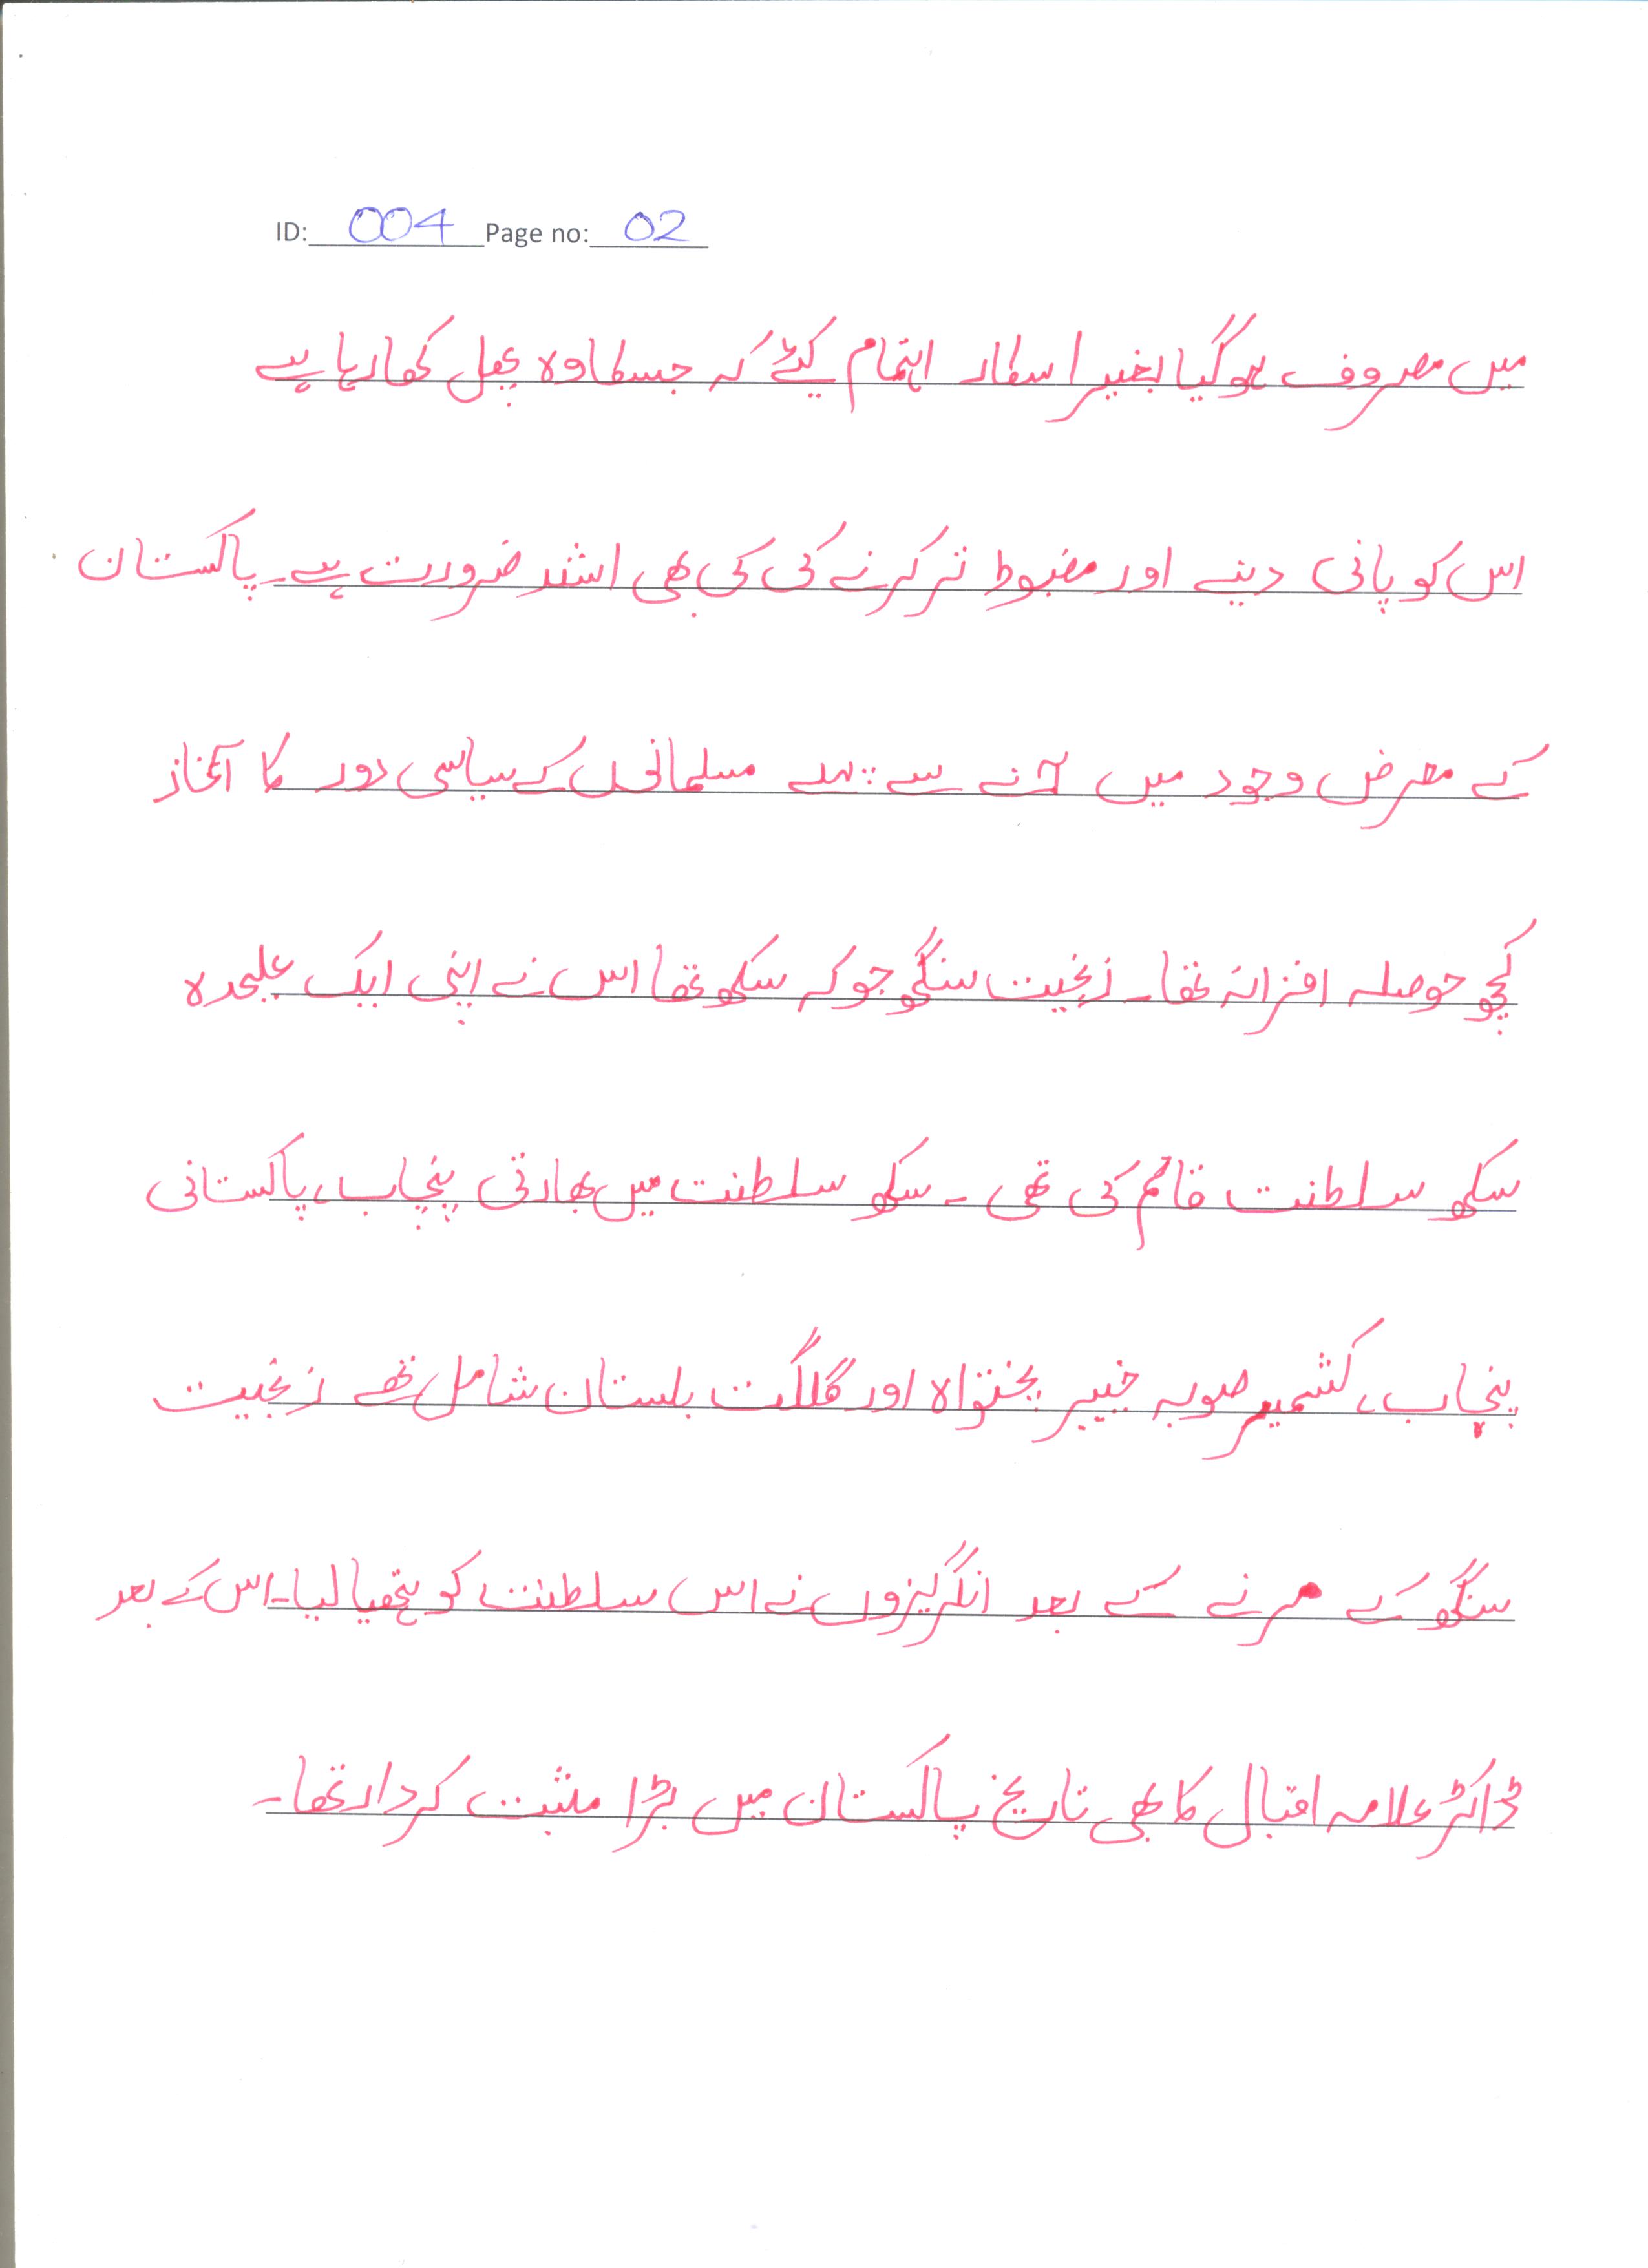 ID: 004 Page no: 02
میں مصروف ہوگیا بغیر اسکا اہتمام کیئے کہ جسکا وہ پھل کھا رہا ہے
اس کو پانی دینے اور مضبوط تر کرنے کی کی بھی اشد ضرورت ہے۔ پاکستان
کے معرض وجود میں آنے سے پہلے مسلمانوں کے سیاسی دور کا آغاز
کچھ حوصلہ افزا نہ تھا۔ رنجیت سنگھ جو کہ سکھ تھا اس نے اپنی ایک علیحدہ
سکھ سلطنت قائم کی تھی ۔ سکھ سلطنت میں بھارتی پنجاب، پاکستانی
پنجاب، کشمیر صوبہ خیبر پختواہ اور گلگت بلستان شامل تھے رنجیت
سنگھ کے مرنے کے بعد انگریزوں نے اس سلطنت کو ہتھیا لیا۔ اس کے بعد
ڈاکٹر علامہ اقبال کا بھی تاریخ پاکستان میں بڑا مثبت کردار تھا۔